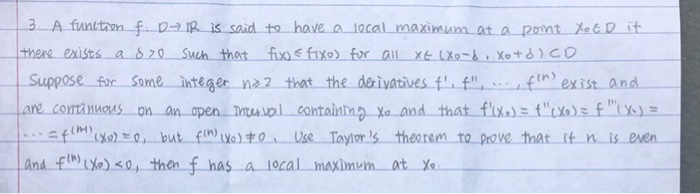 3. A function f: D→ℝ is said to have a local maximum at a point x₀∈D if
there exists a δ>0 such that f(x)≤f(x₀) for all x∈(x₀-δ, x₀+δ)⊂D
Suppose for some integer n≥2 that the derivatives f', f'', ..., f⁽ⁿ⁾ exist and
are continuous on an open interval containing x₀ and that f'(x₀)=f''(x₀)=f'''(x₀)=
...=f⁽ⁿ⁻¹⁾(x₀)=0, but f⁽ⁿ⁾(x₀)≠0. Use Taylor's theorem to prove that if n is even
and f⁽ⁿ⁾(x₀)<0, then f has a local maximum at x₀.